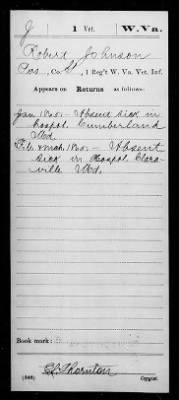 J 1 Vet. W. Va.
Robert Johnson
, Co. , 1 Reg't W. Va. Vet. Inf.
Appears on Returns as follows:
Jan 1865 - Absent sick in
hospt. Cumberland
Md.
Feb & Mch. 1865 - Absent
sick in Hospt. Clarys-
ville Md.
Book mark:
(546) Thornton
Copyist.